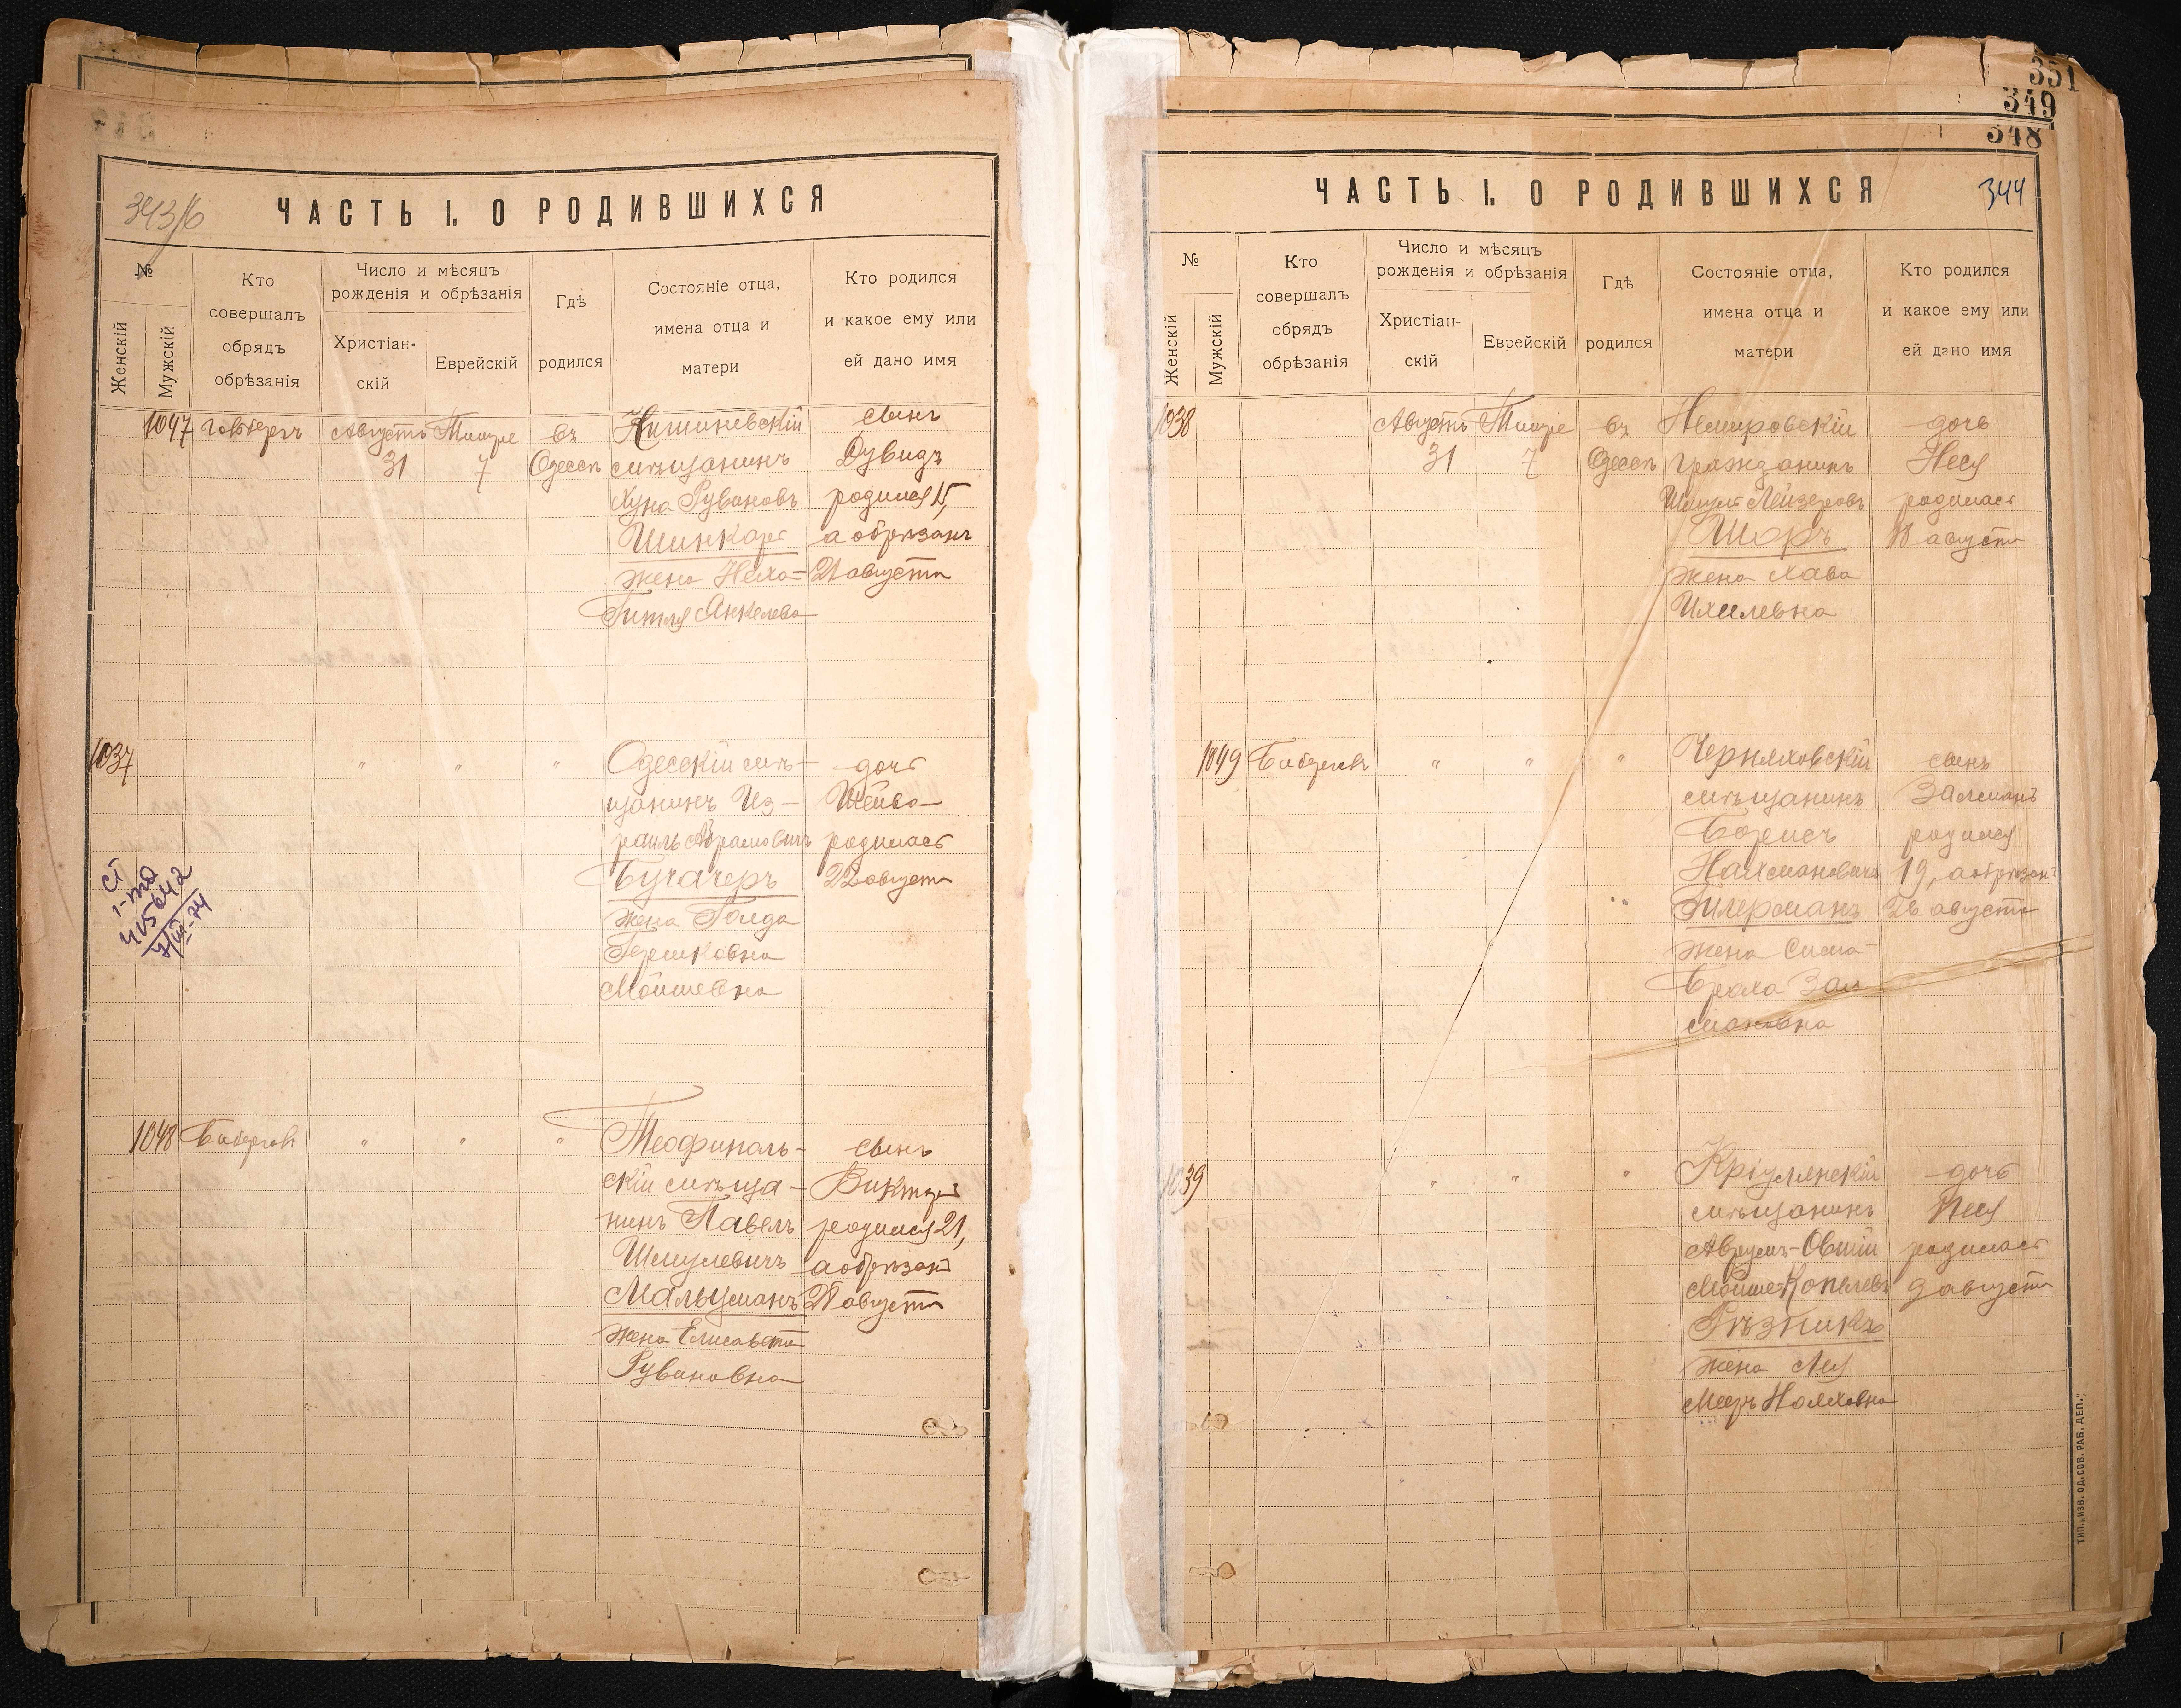 343/б
ЧАСТЬ I. О РОДИВШИХСЯ
№
Женскій
Мужскій
Кто
совершалъ
обрядъ
обрѣзанія
Число и мѣсяцъ
рожденія и обрѣзанія
Христіан-
скій
Еврейскій
Гдѣ
родился
Состояніе отца,
имена отца и
матери
Кто родился
и какое ему или
ей дано имя
1047
Августъ
31
Тишре
7
въ
Одессѣ
Кишиневскій
мѣщанинъ
Хуна Рувиновъ
Шинкарь
жена Неха-
Гитля Анкелева
сынъ
Дувидъ
родился 15,
а обрѣзанъ
21 августа
1037
"
"
"
Одесскій мѣ-
щанинъ Из-
раиль Абрамовичъ
Бучачеръ
жена Голда
Гершковна
Мойшевна
дочь
Шейва
родилась
22 августа
1-та
415642
1048
"
"
"
Теофиполь-
скій мѣща-
нинъ Павелъ
Шмулевичъ
Мальцманъ
жена Елисавета
Рувиновна
сынъ
Викторъ
родился 21,
а обрѣзанъ
28 августа
351
349
348
344
ЧАСТЬ I. О РОДИВШИХСЯ
№
Женскій
Мужскій
Кто
совершалъ
обрядъ
обрѣзанія
Число и мѣсяцъ
рожденія и обрѣзанія
Христіан-
скій
Еврейскій
Гдѣ
родился
Состояніе отца,
имена отца и
матери
Кто родился
и какое ему или
ей дано имя
1038
Августъ
31
Тишре
7
въ
Одессѣ
Немировскій
гражданинъ
Шмуль Лейзеровъ
Шоръ
жена Хава
Ихилевна
дочь
Неся
родилась
18 августа
1049
"
"
"
Черняховскій
мѣщанинъ
Борисъ
Нахмановичъ
жена Сима-
Браха Зал-
мановна
сынъ
Залманъ
родился
19, а обрѣзанъ
26 августа
1039
"
"
"
Кріулянскій
мѣщанинъ
Аврумъ-Овшій
Мойше-Копелевъ
Рѣзникъ
жена Лея
дочь
Песя
родилась
9 августа
ТИП. „ИЗВ. ОД. СОВ. РАБ. ДЕП."